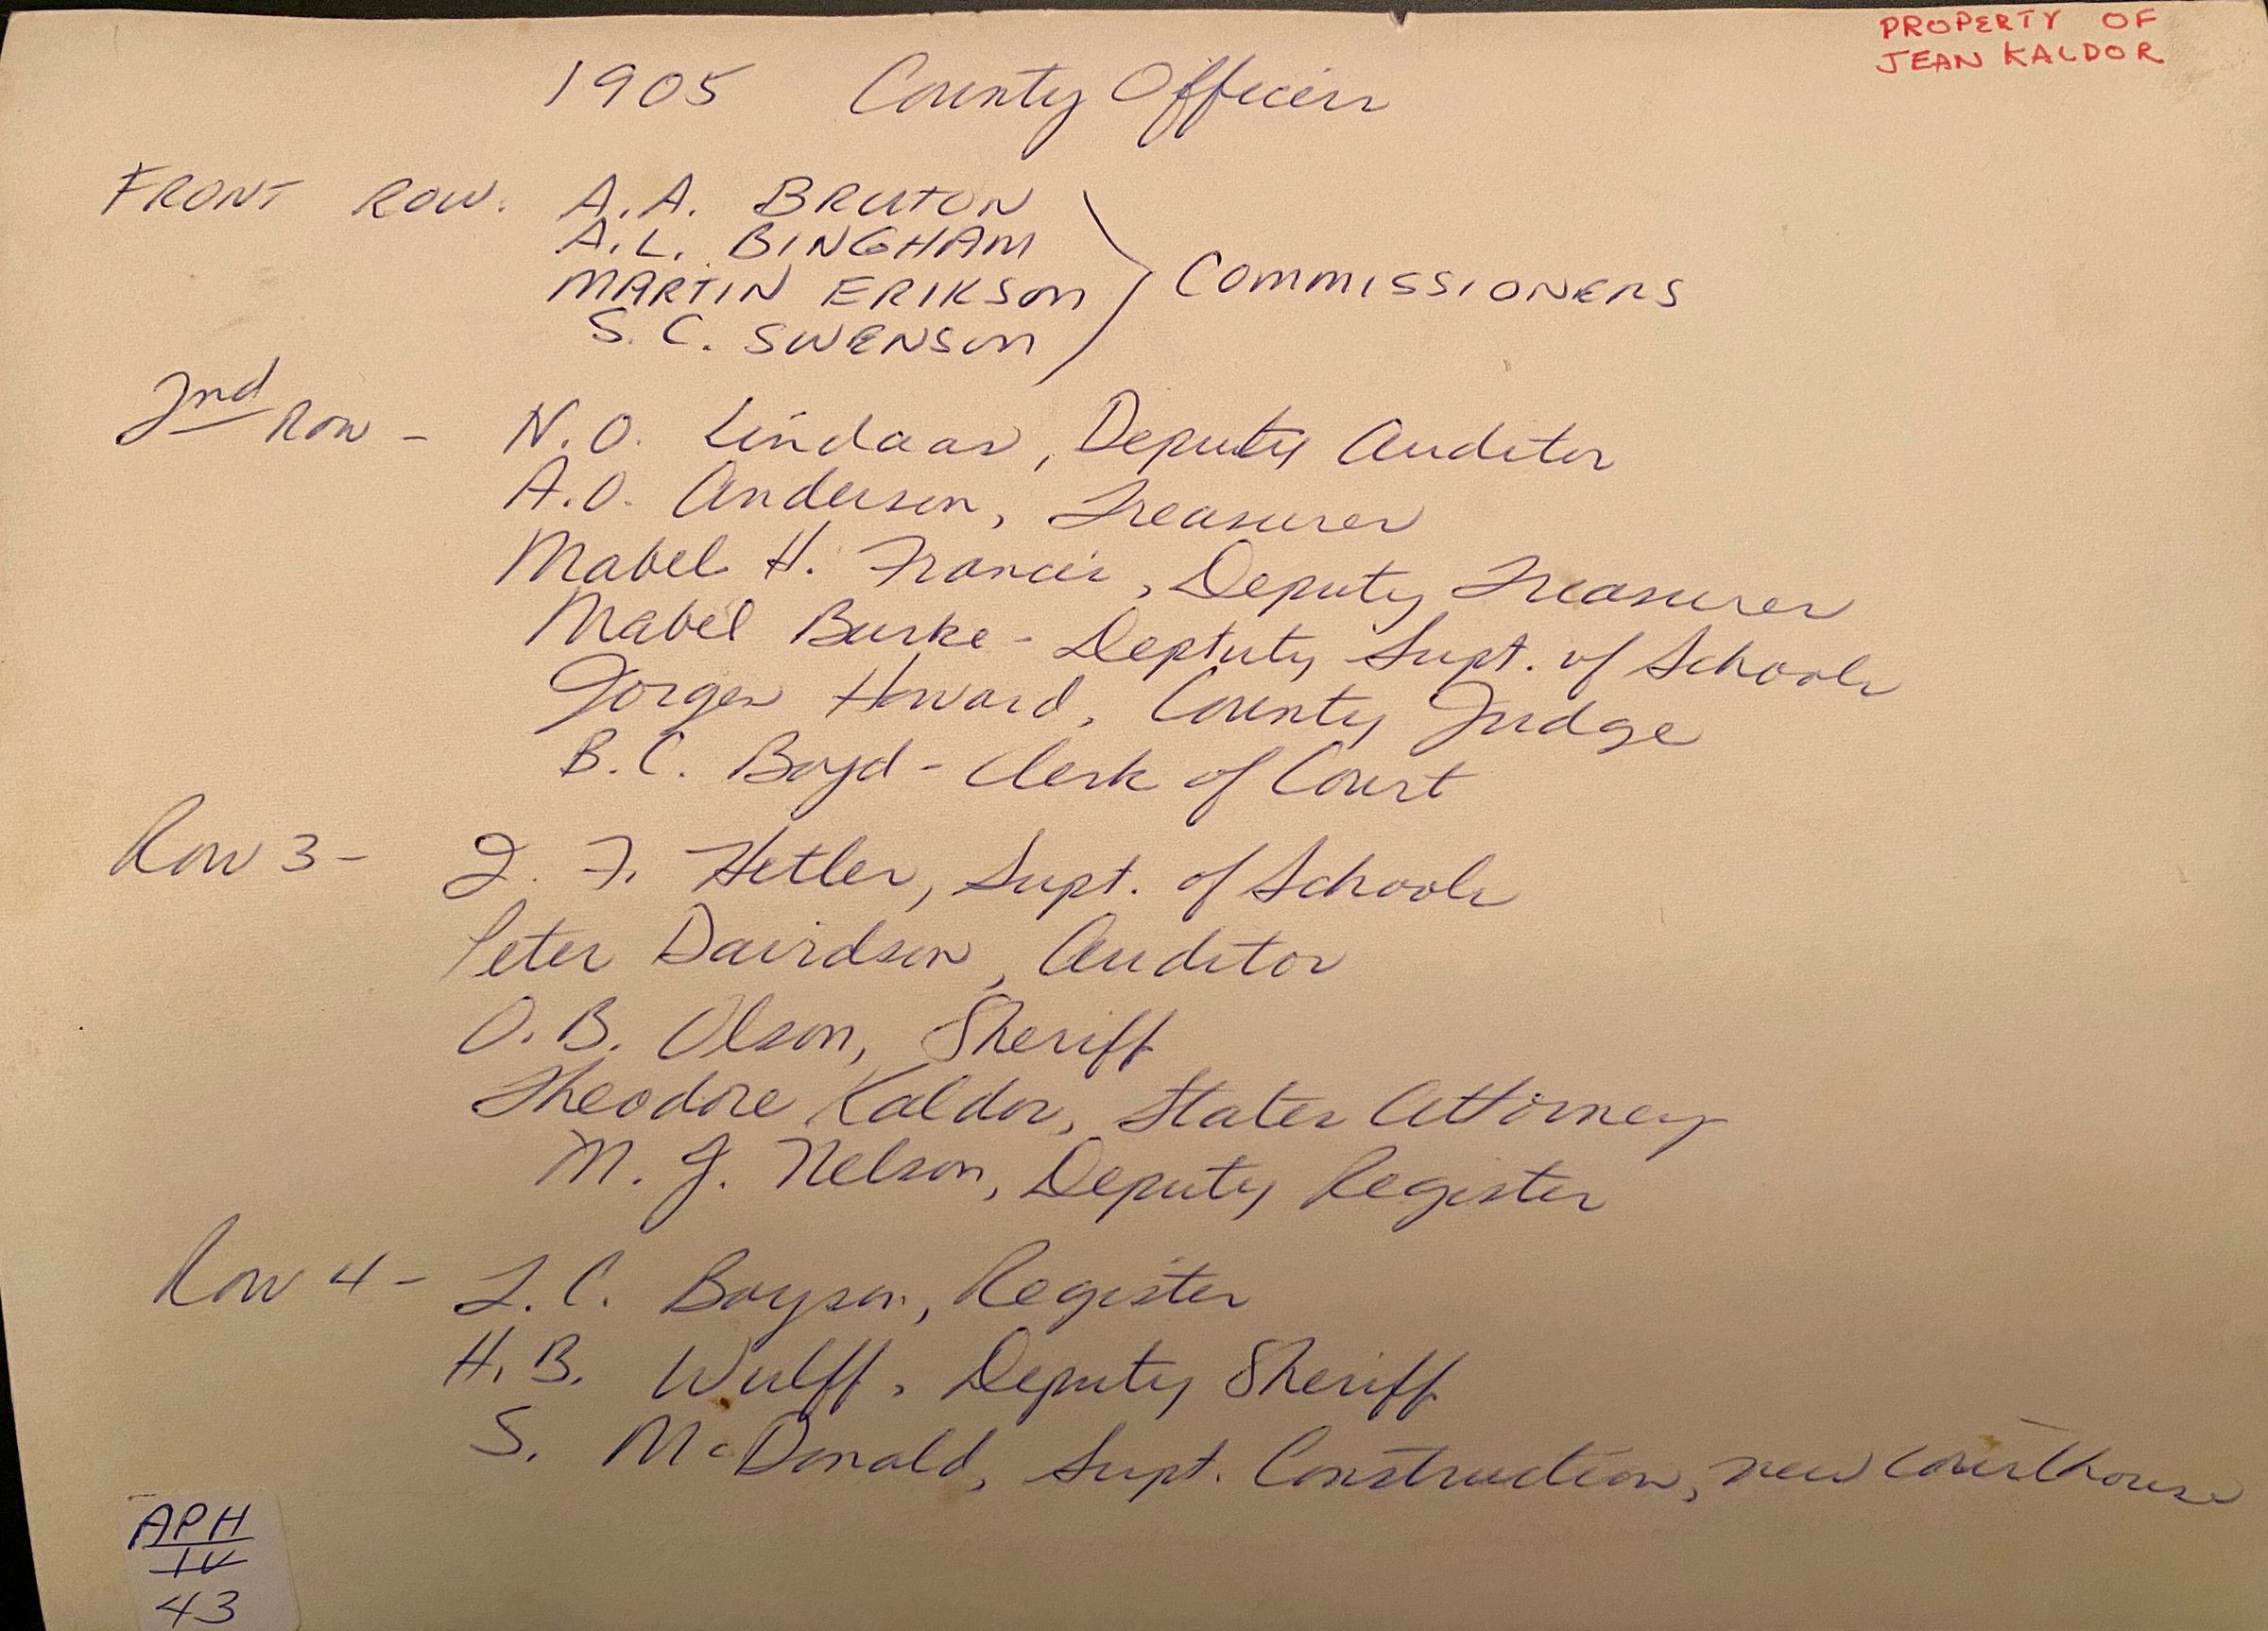 PROPERTY OF
JEAN KALDOR
1905 County Officers
FRONT ROW. A.A. BRUTON
A.L. BINGHAM
MARTIN ERIKSON
COMMISSIONERS
S.C. SWENSON
2nd Row - N.O. Lindaas, Deputy Auditor
A.O. Anderson, Treasurer
Mabel H. Francis, Deputy Treasurer
Mabel Burke - Deptuty Supt. of Schools
Jorgen Howard, County Judge
B.C. Boyd - Clerk of Court
Row 3 - F. Hetler, Supt. of Schools
Peter Davidson, Auditor
O.B. Olson, Sheriff
Theodore Kaldor, States Attorney
M. J. Nelson, Deputy Register
Row 4 - L.C. Boyson, Register
H.B. Wulff, Deputy Sheriff
S. McDonald, Supt. Construction, new Courthouse
APH
IV
43